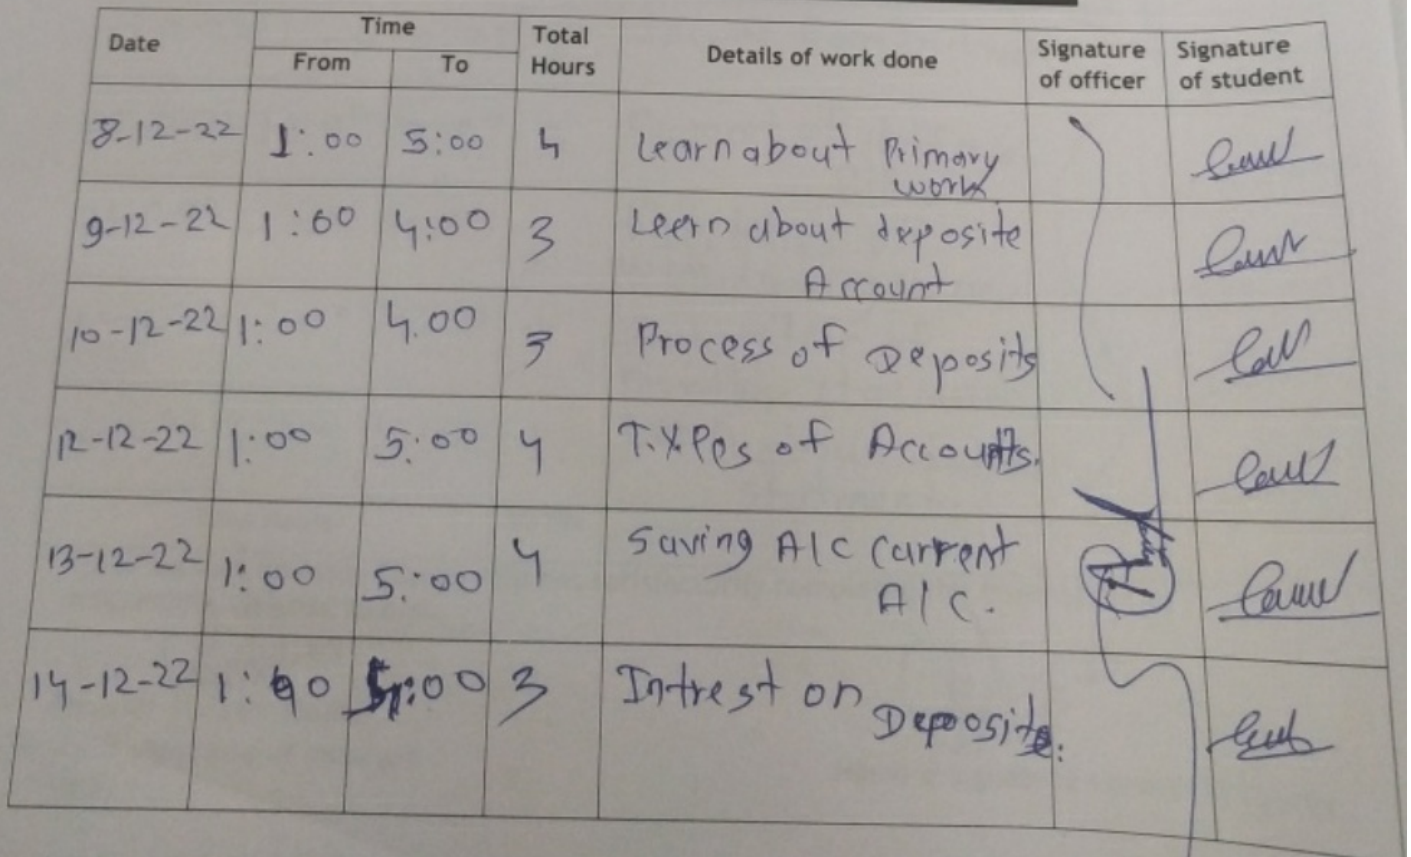 Date Time Total Hours Details of work done Signature of officer Signature of student
From To
8-12-22 1:00 5:00 4 Learn about Primary
work
9-12-22 1:00 4:00 3 Leern about deposite
Account
10-12-22 1:00 4.00 3 Process of Deposits
12-12-22 1:00 5:00 4 T.ypes of Accounts.
13-12-22 1:00 5:00 4 Saving A/C Current
A/C.
14-12-22 1:00 :00 3 Intrest on
Deposite.